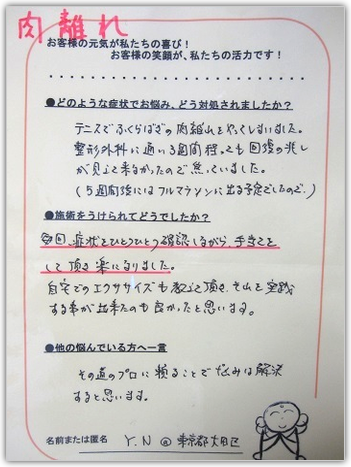 肉離れ
お客様の元気が私たちの喜び!
お客様の笑顔が、私たちの活力です!
●どのような症状でお悩み、どう対処されましたか?
テニスでふくらはぎの肉離れをやってしまいました。
整形外科に通い3週間程たっても回復の兆し
が見えて来なかったので焦っていました。
(5週間後にはフルマラソンに出る予定でしたので。)
●施術をうけられてどうでしたか?
毎回、症状をひとつひとつ確認しながら、手当てを
して頂き楽になりました。
自宅でのエクササイズも教えて頂き、それを実践
する事が出来たのも良かったと思います。
●他の悩んでいる方へ一言
その道のプロに頼ることで悩みは解決
すると思います。
名前または匿名 Y.N @東京都大田区